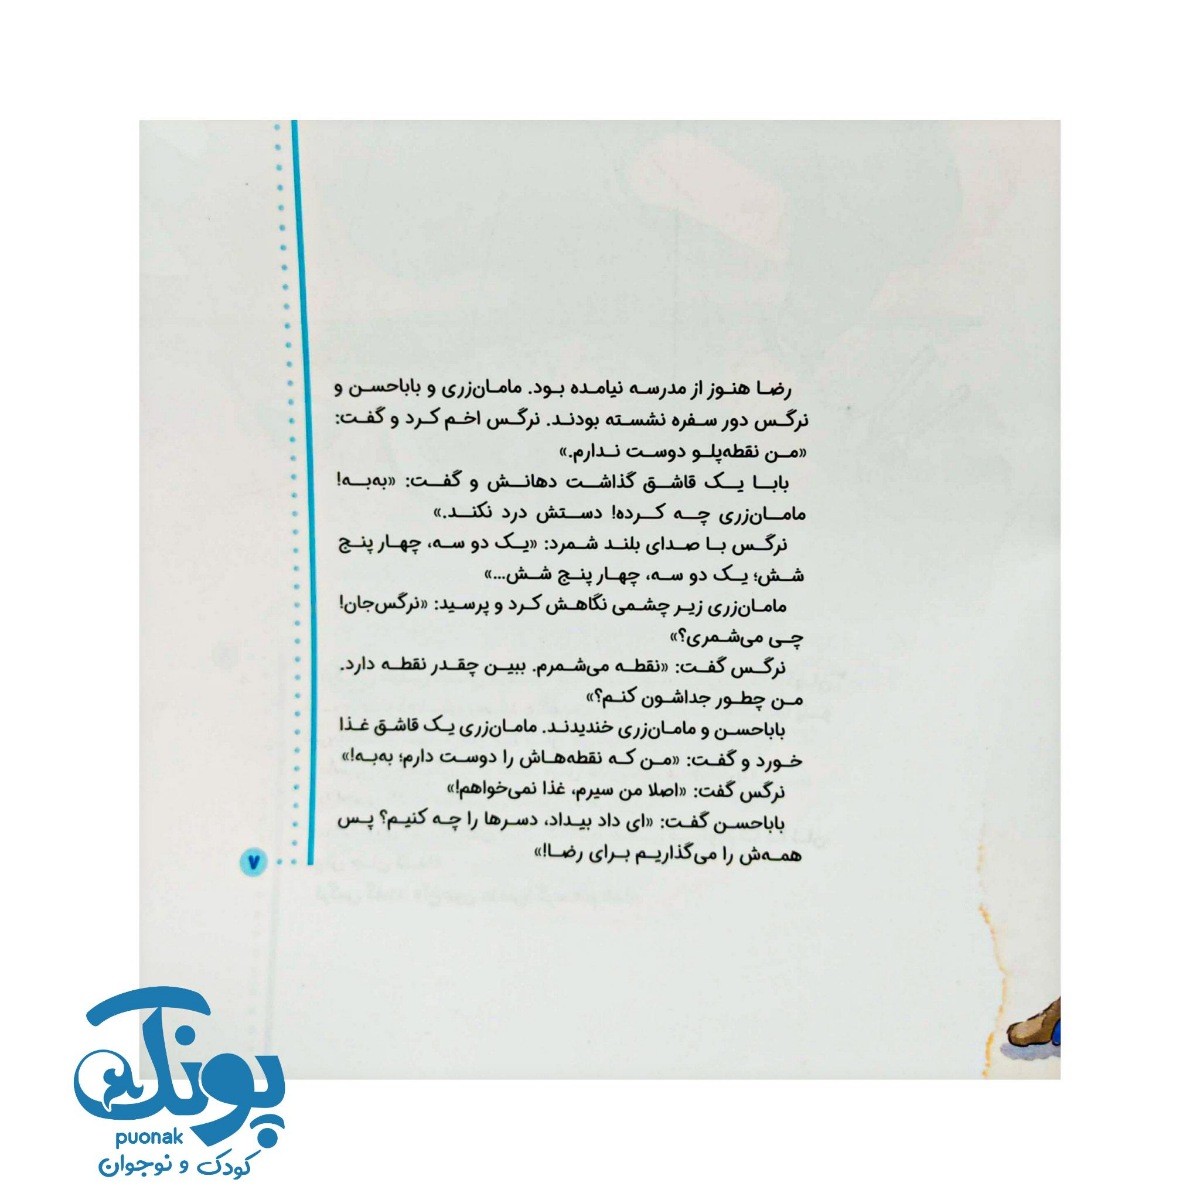 رضا هنوز از مدرسه نیامده بود. مامان‌زری و باباحسن و
نرگس دور سفره نشسته بودند. نرگس اخم کرد و گفت:
«من نقطه‌پلو دوست ندارم.»
بابا یک قاشق گذاشت دهانش و گفت: «به‌به!
مامان‌زری چه کرده! دستش درد نکند.»
نرگس با صدای بلند شمرد: «یک دو سه، چهار پنج
شش؛ یک دو سه، چهار پنج شش...»
مامان‌زری زیر چشمی نگاهش کرد و پرسید: «نرگس‌جان!
چی می‌شمری؟»
نرگس گفت: «نقطه می‌شمرم. ببین چقدر نقطه دارد.
من چطور جداشون کنم؟»
باباحسن و مامان‌زری خندیدند. مامان‌زری یک قاشق غذا
خورد و گفت: «من که نقطه‌هاش را دوست دارم؛ به‌به!»
نرگس گفت: «اصلا من سیرم، غذا نمی‌خواهم!»
باباحسن گفت: «ای داد بیداد، دسرها را چه کنیم؟ پس
همه‌ش را می‌گذاریم برای رضا!»
۷
پونک
puonak
کودک و نوجوان